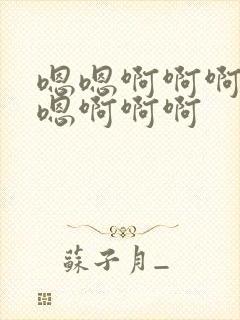 嗯嗯啊啊啊
嗯啊啊啊
蘇子月_